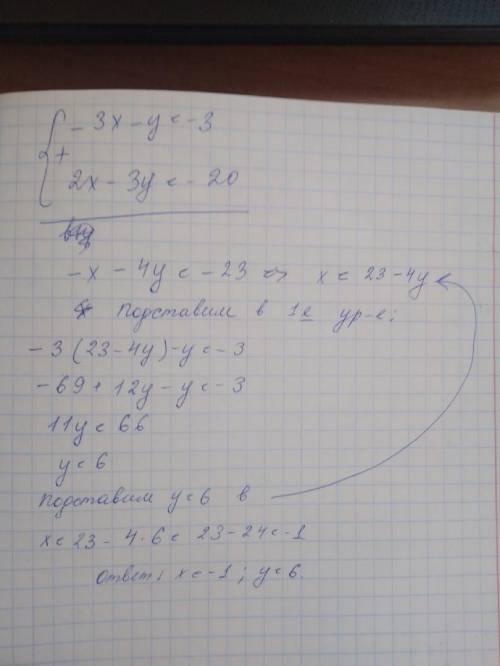 - 3x - y = -3
+
2x - 3y = -20
-x - 4y = -23 <=> x = 23 - 4y
Подставим в 1е ур-е:
-3(23-4y) - y = -3
-69 + 12y - y = -3
11y = 66
y = 6
Подставим y=6 в
x = 23 - 4·6 = 23 - 24 = -1
Ответ: x = -1; y = 6.